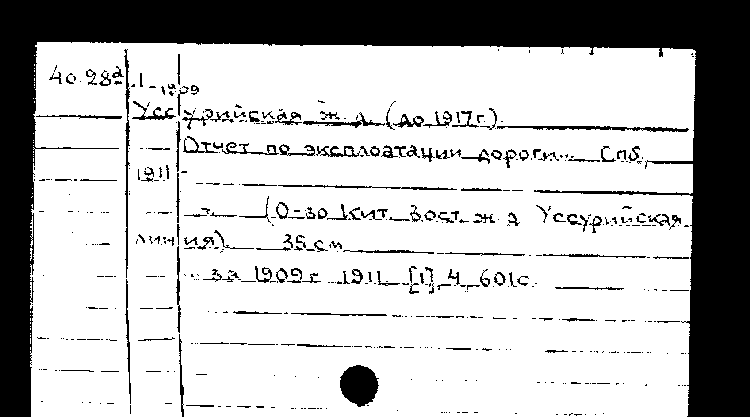 40.28д .1-1909
Уссурийская ж. д. (до 1917г).
Отчет по эксплоатации дороги... Спб,
1911-
–"– (О-во Кит. Вост. ж д Уссурийская
линия). 35 см
.. за 1909г 1911. [1], 4, 601с.